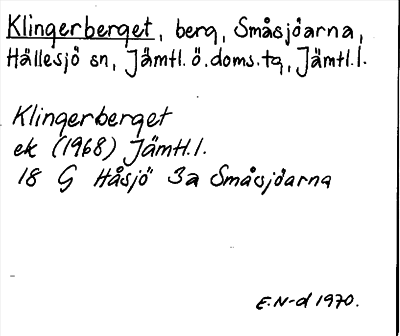 Klingerberget, berg, Småsjöarna,
Hällesjö sn, Jämtl. ö. doms. tg, Jämtl. l.
Klingerberget
ek (1968) Jämtl. l.
18 G Håsjö 3a Småsjöarna
E. N-d 1970.